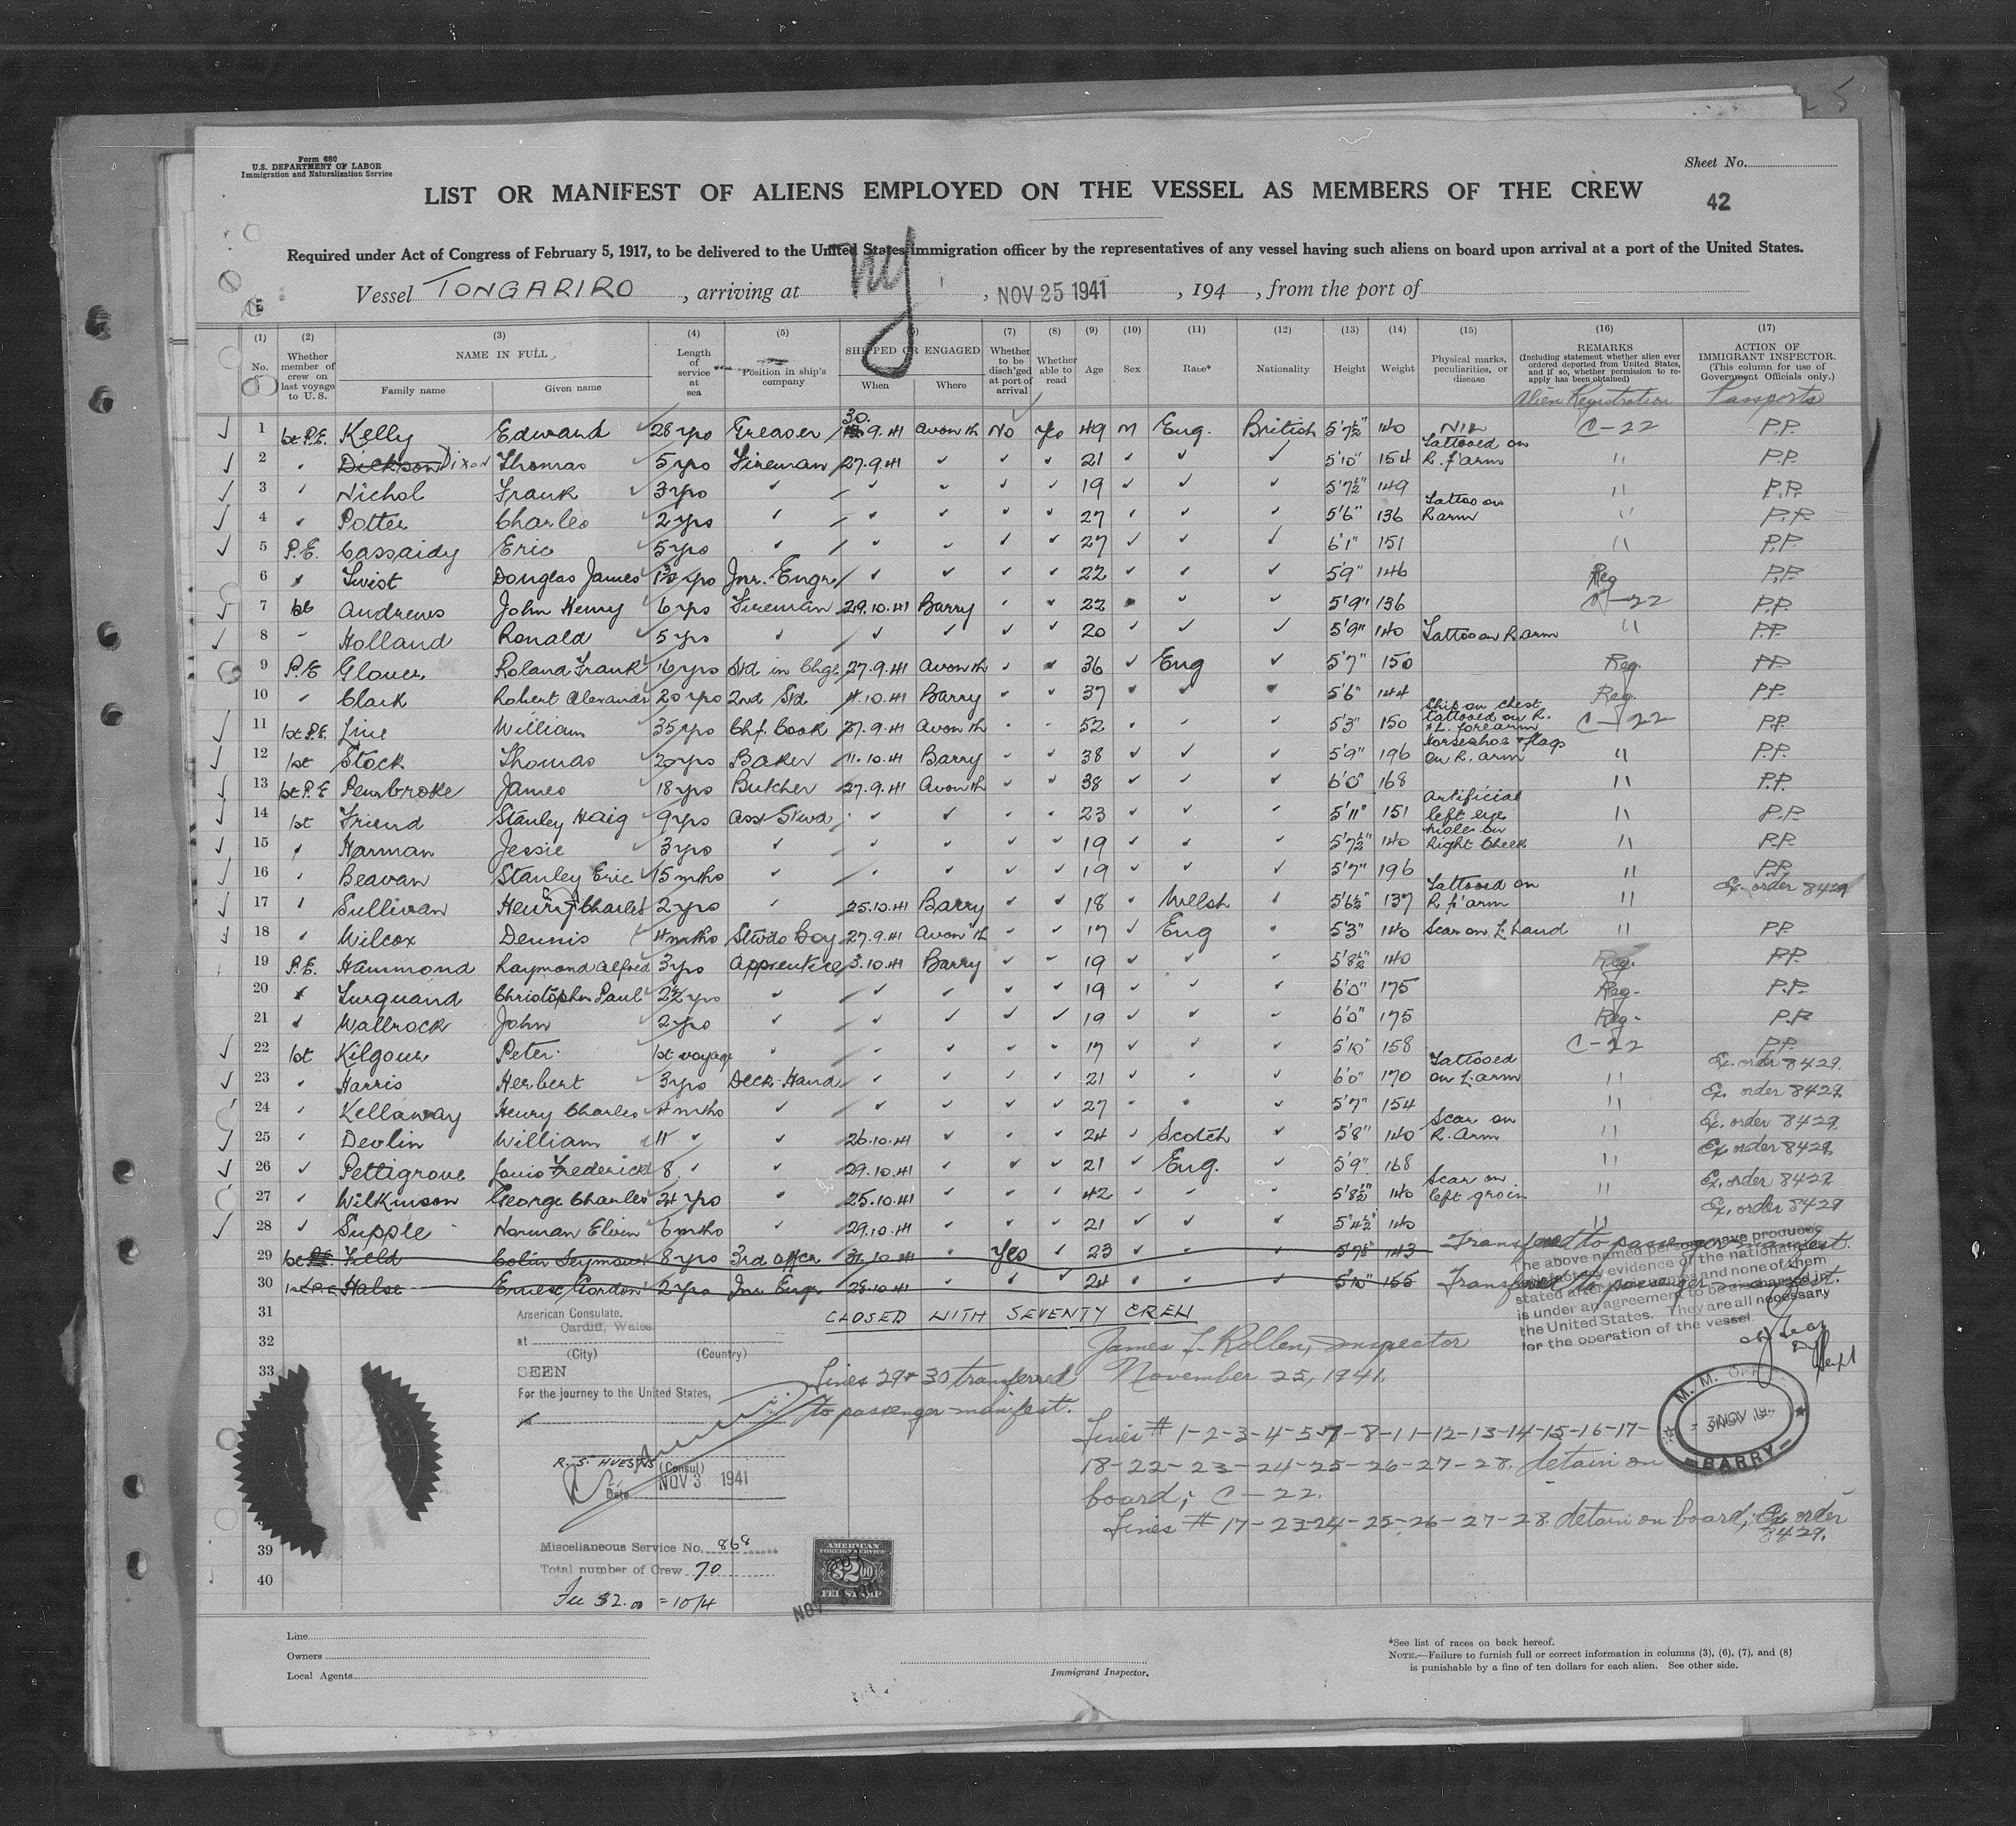 5
Form 680
U.S. DEPARTMENT OF LABOR
Immigration and Naturalization Service
Sheet No.
LIST OR MANIFEST OF ALIENS EMPLOYED ON THE VESSEL AS MEMBERS OF THE CREW
42
Required under Act of Congress of February 5, 1917, to be delivered to the United States immigration officer by the representatives of any vessel having such aliens on board upon arrival at a port of the United States.
Vessel TONGARIRO, arriving at ny, NOV 25 1941, 194, from the port of
(1) (2) (3) (4) (5) (6) (7) (8) (9) (10) (11) (12) (13) (14) (15) (16) (17)
No. Whether member of crew on last voyage to U.S. NAME IN FULL Family name Given name Length of service at sea Position in ship's company SHIPPED OR ENGAGED When Where Whether to be disch'ged at port of arrival Whether able to read Age Sex Race* Nationality Height Weight Physical marks, peculiarities, or disease REMARKS (Including statement whether alien ever ordered deported from United States, and if so, whether permission to re-apply has been obtained) ACTION OF IMMIGRANT INSPECTOR. (This column for use of Government Officials only.)
Alien Registration Passports
1 1st P.E. Kelly Edward 28 yrs Greaser 30.9.41 Avonth No Yes 49 M Eng. British 5'7½" 140 Nil C-22 P.P.
2 Dickson Dixon Thomas 5 yrs Fireman 27.9.41 ✓ ✓ ✓ 21 ✓ ✓ ✓ 5'10" 154 Tattooed on R. f'arm " P.P.
3 Nichol Frank 3 yrs ✓ ✓ ✓ ✓ ✓ 19 ✓ ✓ ✓ 5'7½" 149 " P.P.
4 Potter Charles 2 yrs ✓ ✓ ✓ ✓ ✓ 27 ✓ ✓ ✓ 5'6" 136 Tattoo on R arm " P.P.
5 P.E. Cassaidy Eric 5 yrs ✓ ✓ ✓ ✓ ✓ 27 ✓ ✓ ✓ 6'1" 151 " P.P.
6 Twist Douglas James yrs Jnr. Engr ✓ ✓ ✓ ✓ 22 ✓ ✓ ✓ 5'9" 146 Reg P.P.
7 1st Andrews John Henry 6 yrs Fireman 29.10.41 Barry ✓ ✓ 22 ✓ ✓ 5'9" 136 C-22 P.P.
8 Holland Ronald 5 yrs ✓ ✓ ✓ ✓ ✓ 20 ✓ ✓ ✓ 5'9" 140 Tattoo on R arm " P.P.
9 P.E Glover Roland Frank 16 yrs Std in Chge 27.9.41 Avonth ✓ ✓ 36 ✓ Eng ✓ 5'7" 150 Reg. P.P.
10 Clark Robert Alexander 20 yrs 2nd Std 11.10.41 Barry ✓ ✓ 37 ✓ ✓ 5'6" 144 Reg. P.P.
11 1st P.E. Line William 35 yrs Chf. Cook 27.9.41 Avonth 52 5'3" 150 Ship on chest tattooed on R. & L. forearm C-22 P.P.
12 1st Stock Thomas 20 yrs Baker 11.10.41 Barry ✓ ✓ 38 ✓ ✓ ✓ 5'9" 196 Horseshoe & flags on R. arm " P.P.
13 1st P.E Pembroke James 18 yrs Butcher 27.9.41 Avonth ✓ 38 ✓ ✓ ✓ 6'0" 168 " P.P.
14 1st Friend Stanley Haig 9 yrs Asst Stwd ✓ ✓ ✓ ✓ 23 ✓ ✓ ✓ 5'11" 151 Artificial left eye " P.P.
15 Harman Jessie 3 yrs ✓ ✓ ✓ ✓ ✓ 19 ✓ ✓ ✓ 5'7½" 140 Moles on Right Cheek " P.P.
16 Beavan Stanley Eric 15 mths ✓ ✓ ✓ ✓ 19 ✓ ✓ ✓ 5'7" 196 " P.P.
17 Sullivan Henry Charles 2 yrs 25.10.41 Barry ✓ ✓ 18 Welsh ✓ 5'6½" 137 Tattooed on R. f'arm " Ex. order 8429
18 Wilcox Dennis 4 mths Stwds Boy 27.9.41 Avonth ✓ ✓ 17 ✓ Eng 5'3" 140 Scar on L hand " P.P.
19 P.E. Hammond Raymond Alfred 3 yrs Apprentice 3.10.41 Barry ✓ ✓ 19 ✓ ✓ ✓ 5'8½" 140 Reg. P.P.
20 Turquand Christopher Paul 2½ yrs ✓ ✓ ✓ ✓ ✓ 19 ✓ ✓ ✓ 6'0" 175 Reg. P.P.
21 Wallrock John 2 yrs ✓ ✓ ✓ ✓ ✓ 19 ✓ ✓ ✓ 6'0" 175 Reg. P.P.
22 1st Kilgour Peter 1st voyage ✓ ✓ ✓ ✓ ✓ 17 ✓ ✓ ✓ 5'10" 158 C-22 P.P.
23 Harris Herbert 3 yrs Deck-Hand ✓ ✓ ✓ ✓ 21 ✓ ✓ ✓ 6'0" 170 Tattooed on L. arm " Ex. order 8429.
24 Kellaway Henry Charles 4 mths ✓ ✓ ✓ ✓ ✓ 27 ✓ 5'7" 154 " Ex. order 8429
25 Devlin William 11 ✓ ✓ 26.10.41 ✓ ✓ ✓ 24 ✓ Scotch ✓ 5'8" 140 Scar on R. Arm " Ex. order 8429
26 Pettigrove Louis Frederick 8 ✓ ✓ 29.10.41 ✓ ✓ ✓ 21 ✓ Eng. ✓ 5'9" 168 " Ex. order 8429
27 Wilkinson George Charles 24 yrs 25.10.41 ✓ ✓ ✓ 42 5'8½" 140 Scar on left groin " Ex. order 8429
28 Supple Norman Elvin 6 mths 29.10.41 ✓ ✓ ✓ 21 ✓ ✓ ✓ 5'4½" 140 " Ex. order 8429
29 1st Field Colin Seymour 8 yrs 3rd Offcr 31.10.41 Yes ✓ 23 5'7½" 143 Transferred to passenger manifest.
30 1st P.E Halse Ernest Gordon 2 yrs Jnr Engr 28.10.41 ✓ ✓ ✓ 24 5'10" 155 Transferred to passenger manifest.
The above named persons have produced
satisfactory evidence of the nationalities
stated after their names and none of them
is under an agreement to be discharged in
the United States. They are all necessary
for the operation of the vessel.
31 CLOSED WITH SEVENTY CREW
American Consulate.
Cardiff, Wales
32 at
(City) (Country)
James L. Rollen, Inspector
November 25, 1941.
33 SEEN
For the journey to the United States,
Lines 29 & 30 transferred
to passenger manifest.
Lines # 1-2-3-4-5-7-8-11-12-13-14-15-16-17-
18-22-23-24-25-26-27-28. detain on
board; C-22.
Lines # 17-23-24-25-26-27-28. detain on board; Ex order
8429.
M. M. O.
3 NOV 194
BARRY
R. S. HUESTIS (Consul)
Date NOV 3 1941
39 Miscellaneous Service No. 868
40 Total number of Crew 70
Fee $2.00 = 10/4
AMERICAN
FOREIGN SERVICE
$2.00
FEE STAMP
NOV 3 1941
Line
Owners
Local Agents
Immigrant Inspector.
*See list of races on back hereof.
NOTE.—Failure to furnish full or correct information in columns (3), (6), (7), and (8)
is punishable by a fine of ten dollars for each alien. See other side.